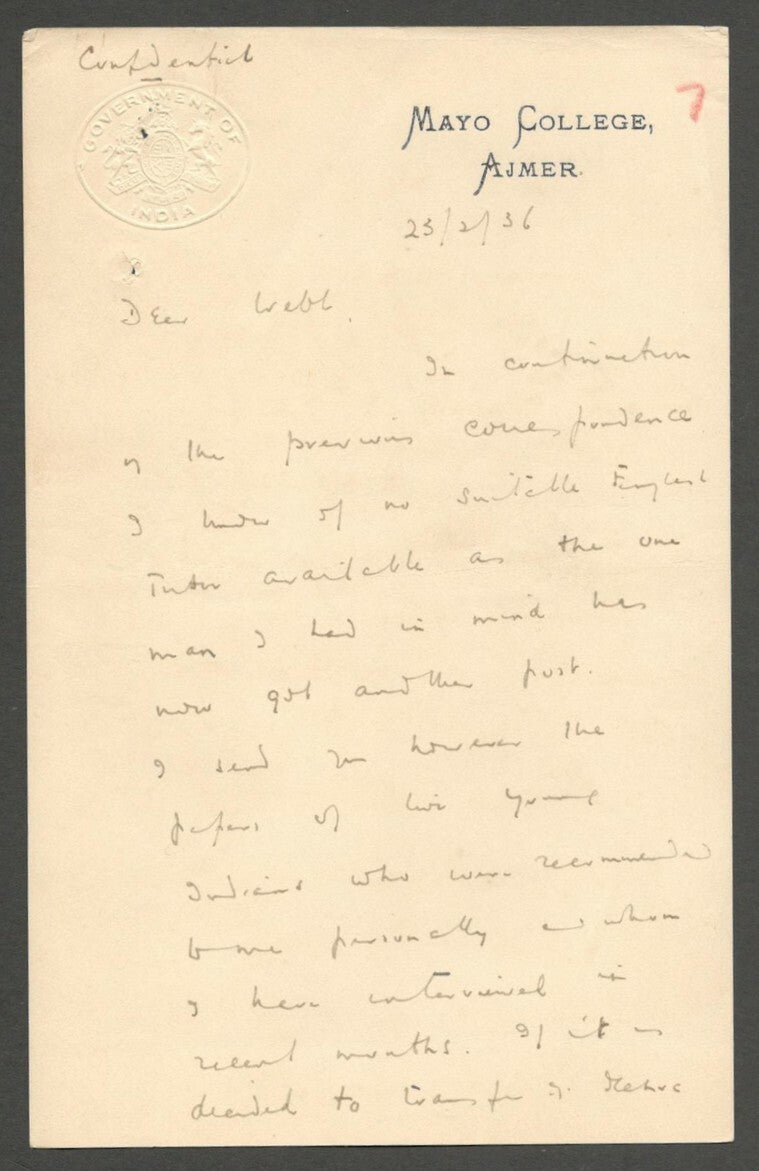 Confidential
GOVERNMENT OF INDIA
7
MAYO COLLEGE,
AJMER.
23/2/36
Dear Webb.
In continuation
of the previous correspondence
I know of no suitable English
Tutor available as the one
man I had in mind has
now got another post.
I send you however the
papers of two young
Indians who were recommended
to me personally and whom
I have interviewed in
recent months. If it is
decided to transfer